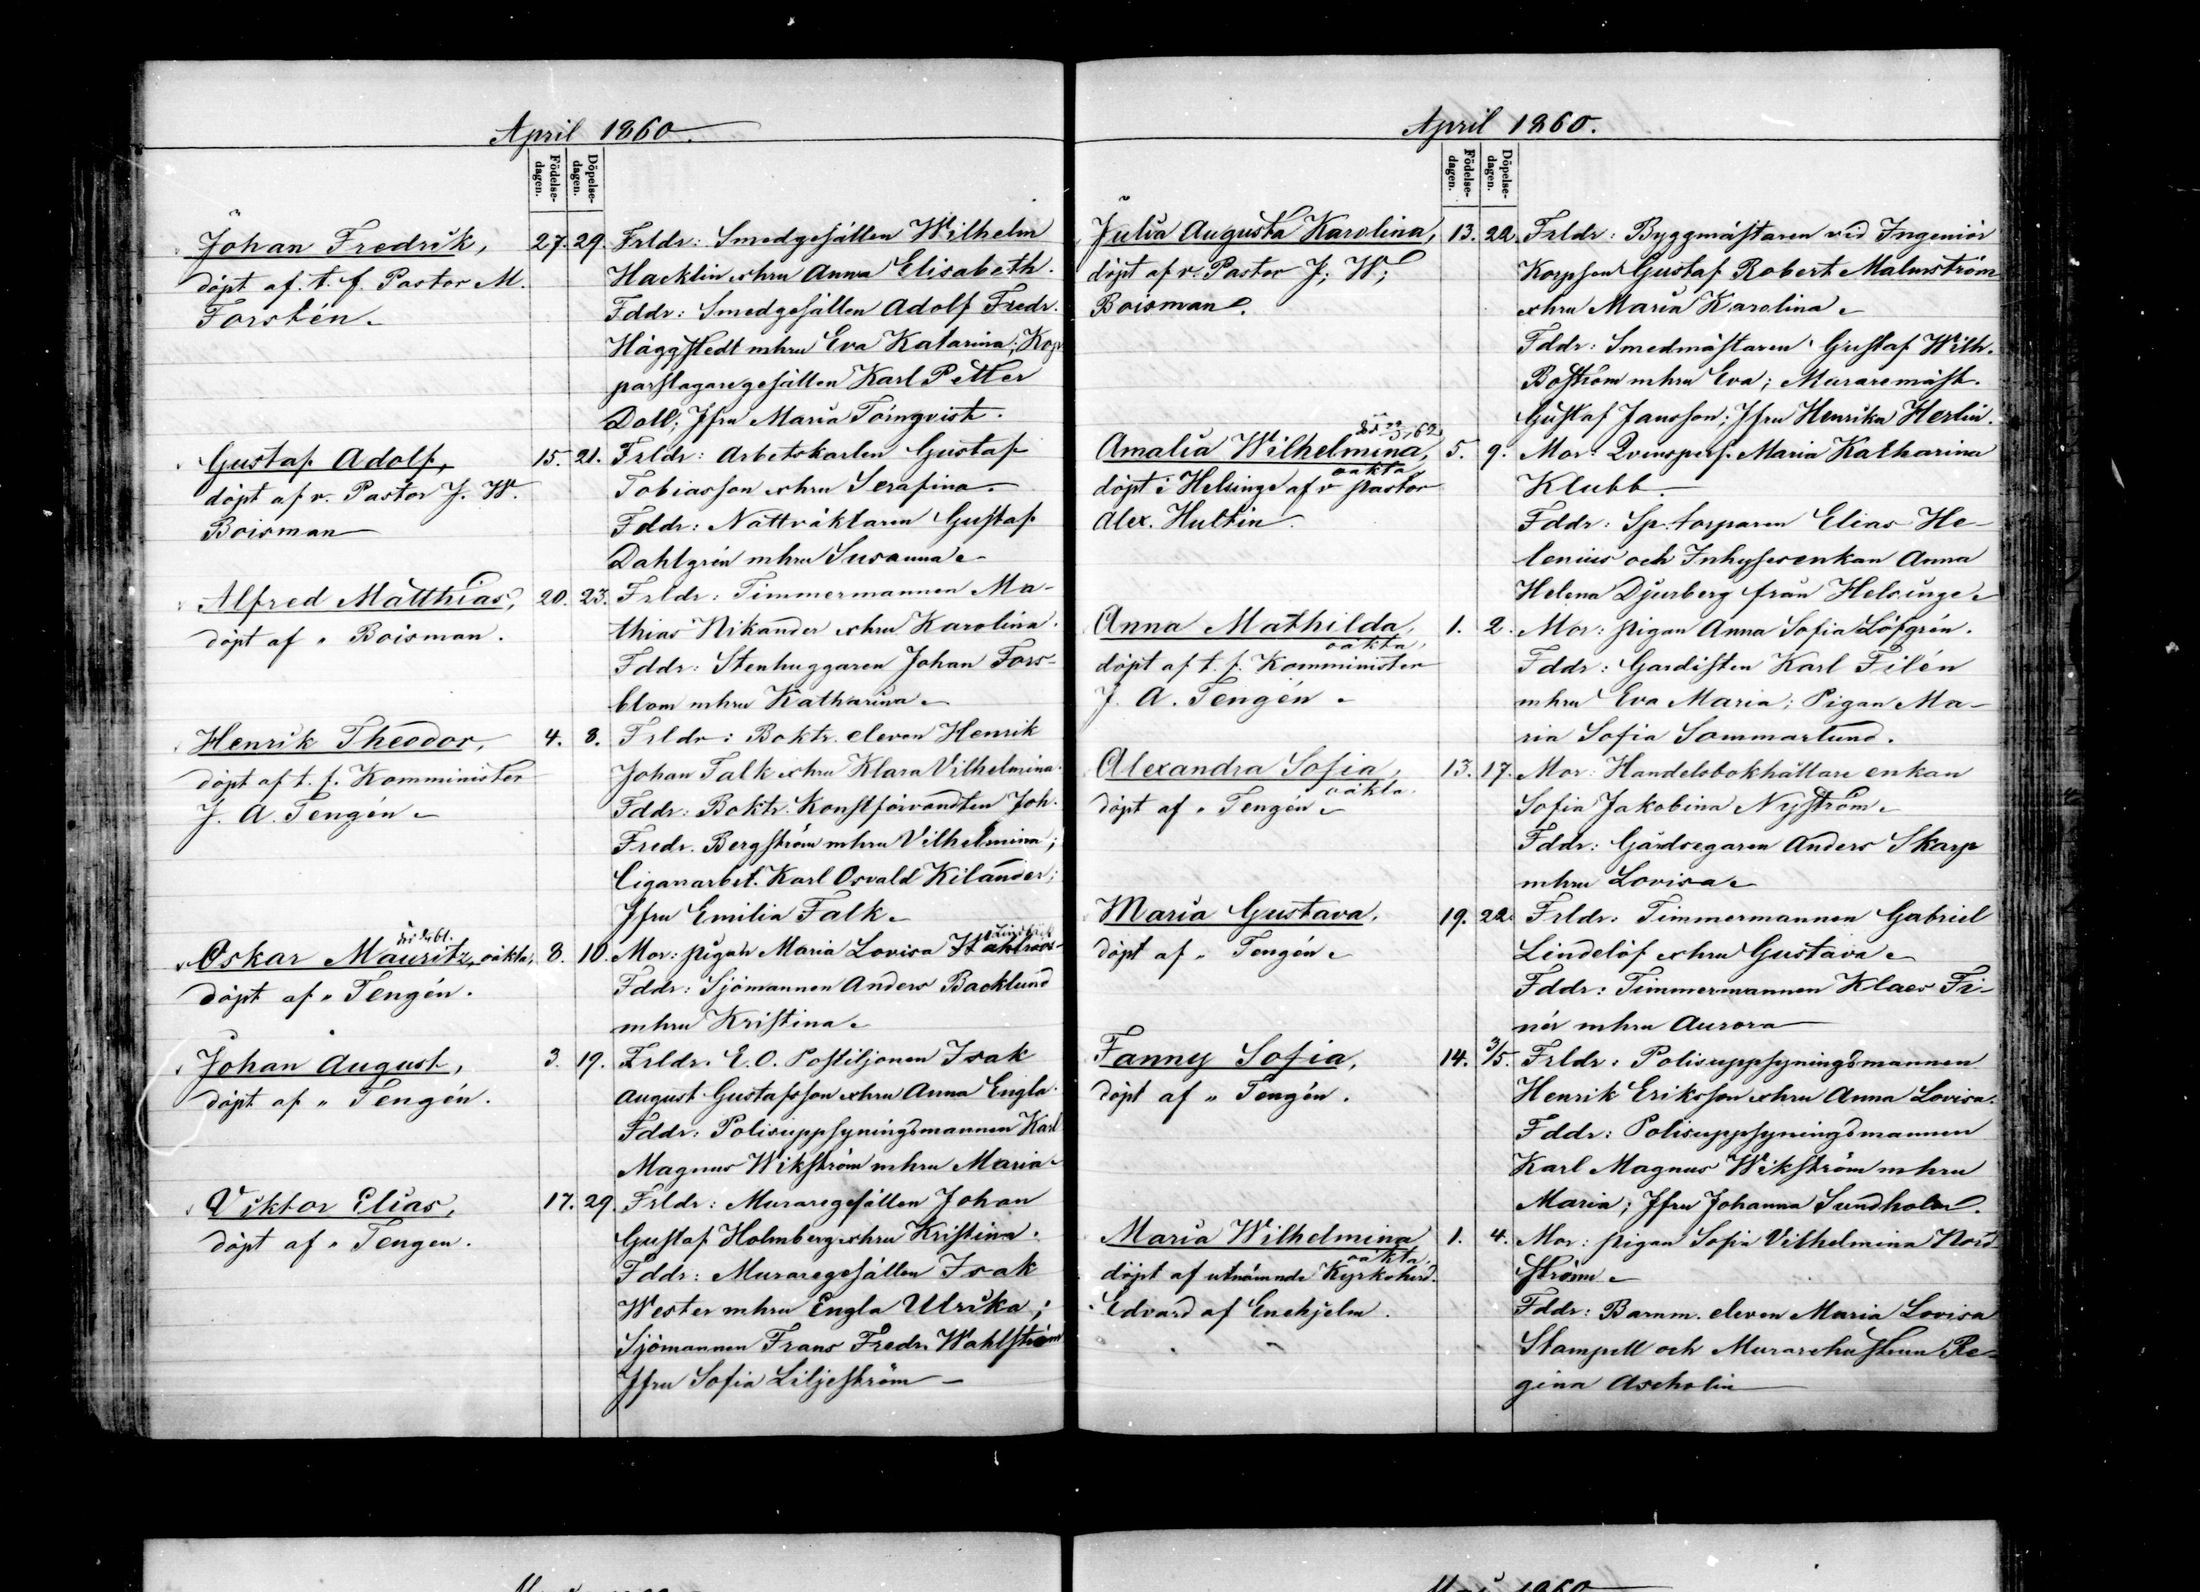 April 1860.
Födelse-
dagen.
Döpelse-
dagen.
Johan Fredrik,
döpt af t. f. Pastor M.
Forstén.
27. 29. Frldr: Smedgesällen Wilhelm
Hacklin o hru Anna Elisabeth.
Fddr: Smedgesällen Adolf Fredr.
Häggstedt m hru Eva Katarina; Kop
parslagaregesällen Karl Petter
Doll; Jfru Maria Törnqvist.
Gustaf Adolf,
döpt af v. Pastor J. W.
Boisman
15. 21. Frldr: Arbetskarlen Gustaf
Tobiasson o hru Serafina.
Fddr: Nattväktaren Gustaf
Dahlgrén m hru Susanna.
Alfred Matthias,
döpt af " Boisman.
20. 23. Frldr: Timmermannen Ma-
thias Nikander o hru Karolina.
Fddr: Stenhuggaren Johan Fors-
blom m hru Katharina.
Henrik Theodor,
döpt af t. f. Komminister
J. A. Tengén.
4. 8. Frldr: Boktr. eleven Henrik
Johan Falk o hru Klara Vilhelmina.
Fddr: Boktr. Konstförvandten Joh.
Fredr. Bergström m hru Vilhelmina;
Cigararbet. Karl Osvald Kilander;
Jfru Emilia Falk.
Oskar Mauritz, oäkta,
döpt af " Tengén.
8. 10. Mor: pigan Maria Lovisa
Fddr: Sjömannen Anders Backlund
m hru Kristina.
Johan August,
döpt af " Tengén.
3. 19. Frldr. E.O. Postiljonen Isak
August Gustafsson o hru Anna Engla.
Fddr: Polisuppsyningsmannen Karl
Magnus Wikström m hru Maria.
Viktor Elias,
döpt af " Tengen.
17. 29. Frldr: Muraregesällen Johan
Gustaf Holmberg o hru Kristina.
Fddr: Muraregesällen Isak
Wester m hru Engla Ulrika;
Sjömannen Frans Fredr. Wahlström
Jfru Sofia Liljeström
April 1860.
Födelse-
dagen.
Döpelse-
dagen.
Julia Augusta Karolina,
döpt af v. Pastor J. W.
Boisman.
13. 22. Frldr: Byggmästaren vid Ingeniör
Korpsen Gustaf Robert Malmström
o hru Maria Karolina.
Fddr: Smedmästaren Gustaf Wilh.
Boström m hru Eva; Muraremäst.
Gustaf Jansson; Jfru Henrika Herlin.
Amalia Wilhelmina,
oäkta,
döpt i Helsinge af v pastor
Alex. Hultin.
5. 9. Mor: Qvinspers. Maria Katharina
Klubb.
Fddr: Sp. torparen Elias He-
lenius och Inhysesenkan Anna
Helena Djurberg från Helsinge.
Anna Mathilda,
oäkta,
döpt af t. f. Komminister
J. A. Tengén.
1. 2. Mor: pigan Anna Sofia Löfgrén.
Fddr: Gardisten Karl Filén
m hru Eva Maria; Pigan Ma-
ria Sofia Sommarlund.
Alexandra Sofia,
oäkta.
döpt af " Tengén.
13. 17. Mor: Handelsbokhållare enkan
Sofia Jakobina Nyström.
Fddr: Gårdsegaren Anders Skarp
m hru Lovisa.
Maria Gustava,
döpt af " Tengén.
19. 22. Frldr: Timmermannen Gabriel
Lindelöf o hru Gustava.
Fddr: Timmermannen Klaes Fi-
nér m hru Aurora
Fanny Sofia,
döpt af " Tengén.
14. 3/5. Frldr: Polisuppsyningsmannen
Henrik Eriksson o hru Anna Lovisa.
Fddr: Polisuppsyningsmannen
Karl Magnus Wikström m hru
Maria; Jfru Johanna Sundholm.
Maria Wilhelmina
oäkta,
döpt af utnämnde Kyrkoherd.
Edvard af Enehjelm.
1. 4. Mor: pigan Sofia Vilhelmina Nord
ström.
Fddr: Barnm. eleven Maria Lovisa
Stampell och Murarehustrun Re-
gina Ascholin
1860